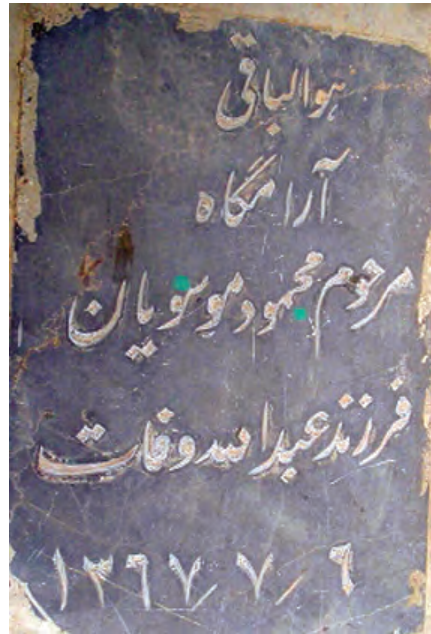 هوالباقی
آرامگاه
مرحوم محمود موسویان
فرزند عبدالله وفات
۱۳۶۷/۷/۶